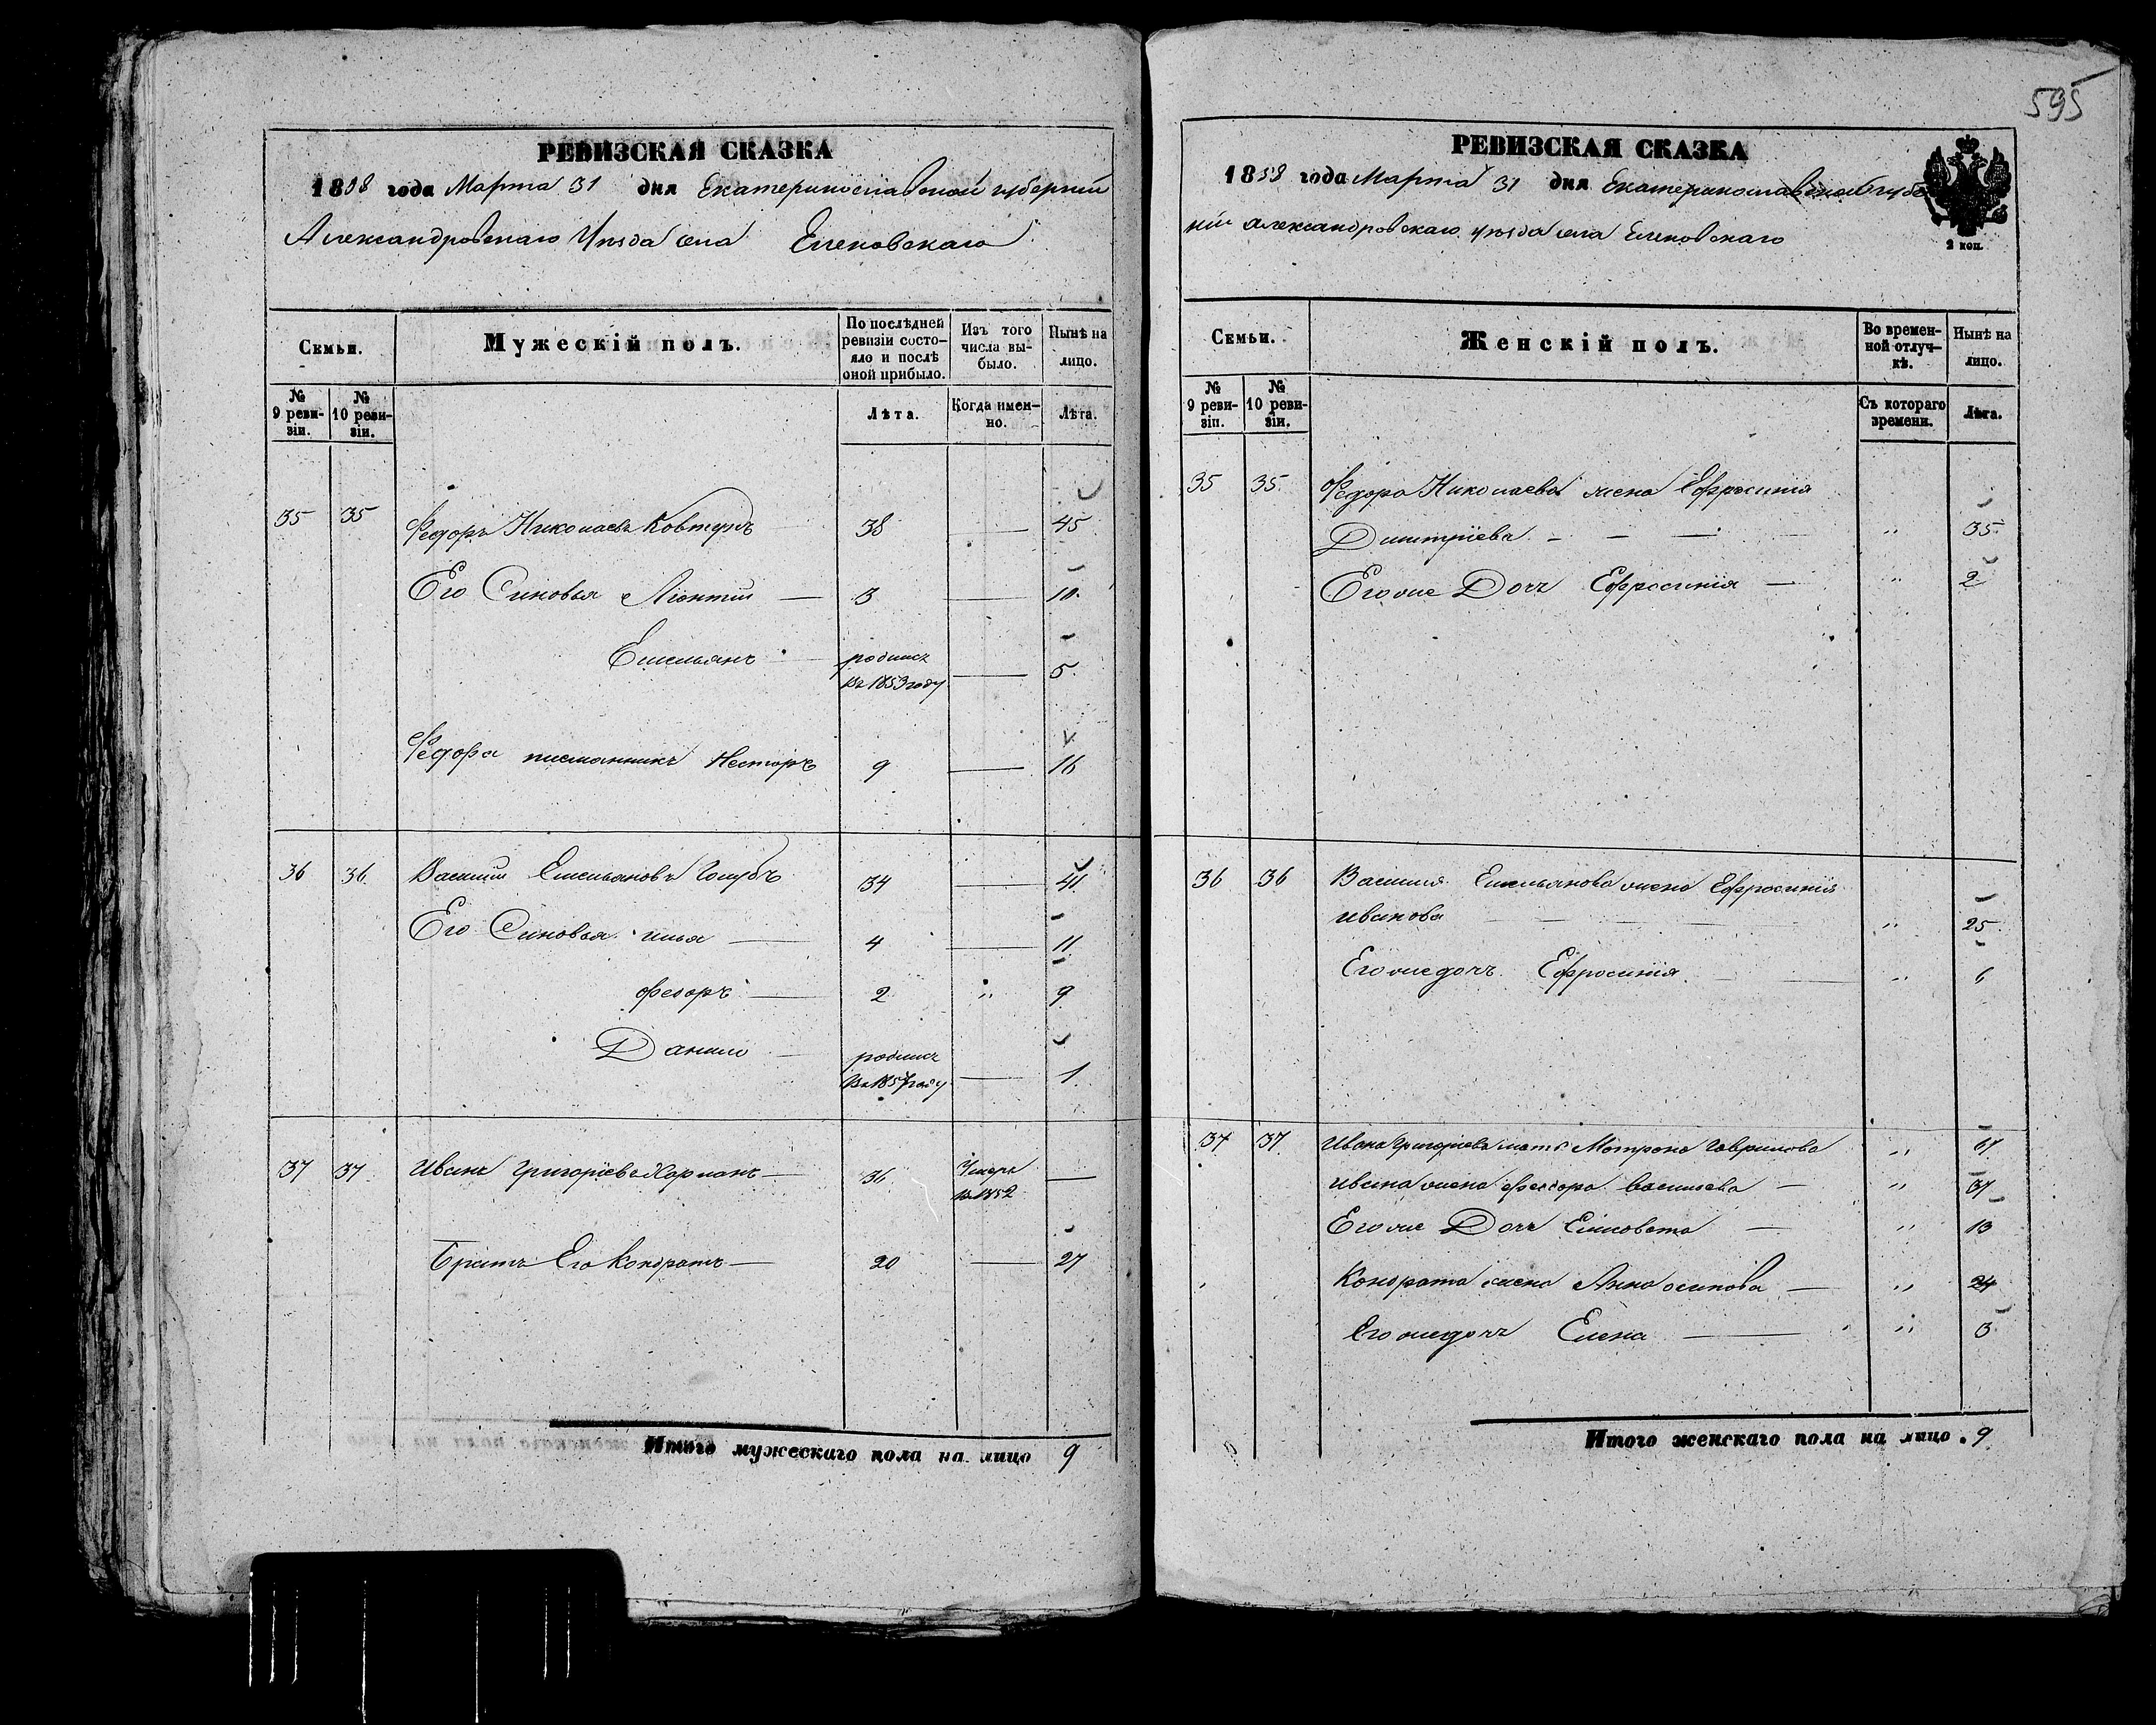 595
РЕВИЗСКАЯ СКАЗКА
1858 года Марта 31 дня Екатеринославской губерніи
Александровскаго Уѣзда села Еленовскаго
Семьи.
Мужескій полъ.
По послѣдней ревизіи состояло и послѣ оной прибыло.
Изъ того числа выбыло.
Нынѣ на лицо.
№ 9 ревизіи.
№ 10 ревизіи.
Лѣта.
Когда именно.
Лѣта.
35 35 Федоръ Николаевъ Ковтунъ 38 — 45
Его Синовья Леонтій — 3 — 10.
Емельянъ — родился въ 1853 году — 5.
Федора племянникъ Несторъ 9 — 16
36 36. Василий Емельяновъ Голубъ 34 — 41
Его Синовья илья — 4 — 11
федоръ — 2 " 9
Данило — родился въ 1857 году — 1.
37 37. Иванъ Григоріевъ — 36 Умеръ въ 1852 —
Братъ Его Кондратъ — 20 — 27
Итого мужескаго пола на лицо 9
РЕВИЗСКАЯ СКАЗКА
1858 года Марта 31 дня Екатеринославской губер
ніи Александровскаго уѣзда села Еленовскаго
2 коп.
Семьи.
Женскій полъ.
Во временной отлучкѣ.
Нынѣ на лицо.
№ 9 ревизіи.
№ 10 ревизіи.
Съ котораго времени.
Лѣта.
35 35. Федора Николаева жена Ефросинія
Дмитріева — — — " 35
Его же Дочь Ефросинія — " 2
36 36 Василия Емельянова жена Ефросинія
иванова — " 25
Его же дочь Ефросинія — " 6
37 37. Ивана Григоріева мать Мотрона Гаврилова " 61
ивана жена федора васильева — " 37
Его же Дочь Елисовета — " 13
Кондрата жена Анна осипова — " 24
Его же дочь Елена — " 3
Итого женскаго пола на лицо. 9